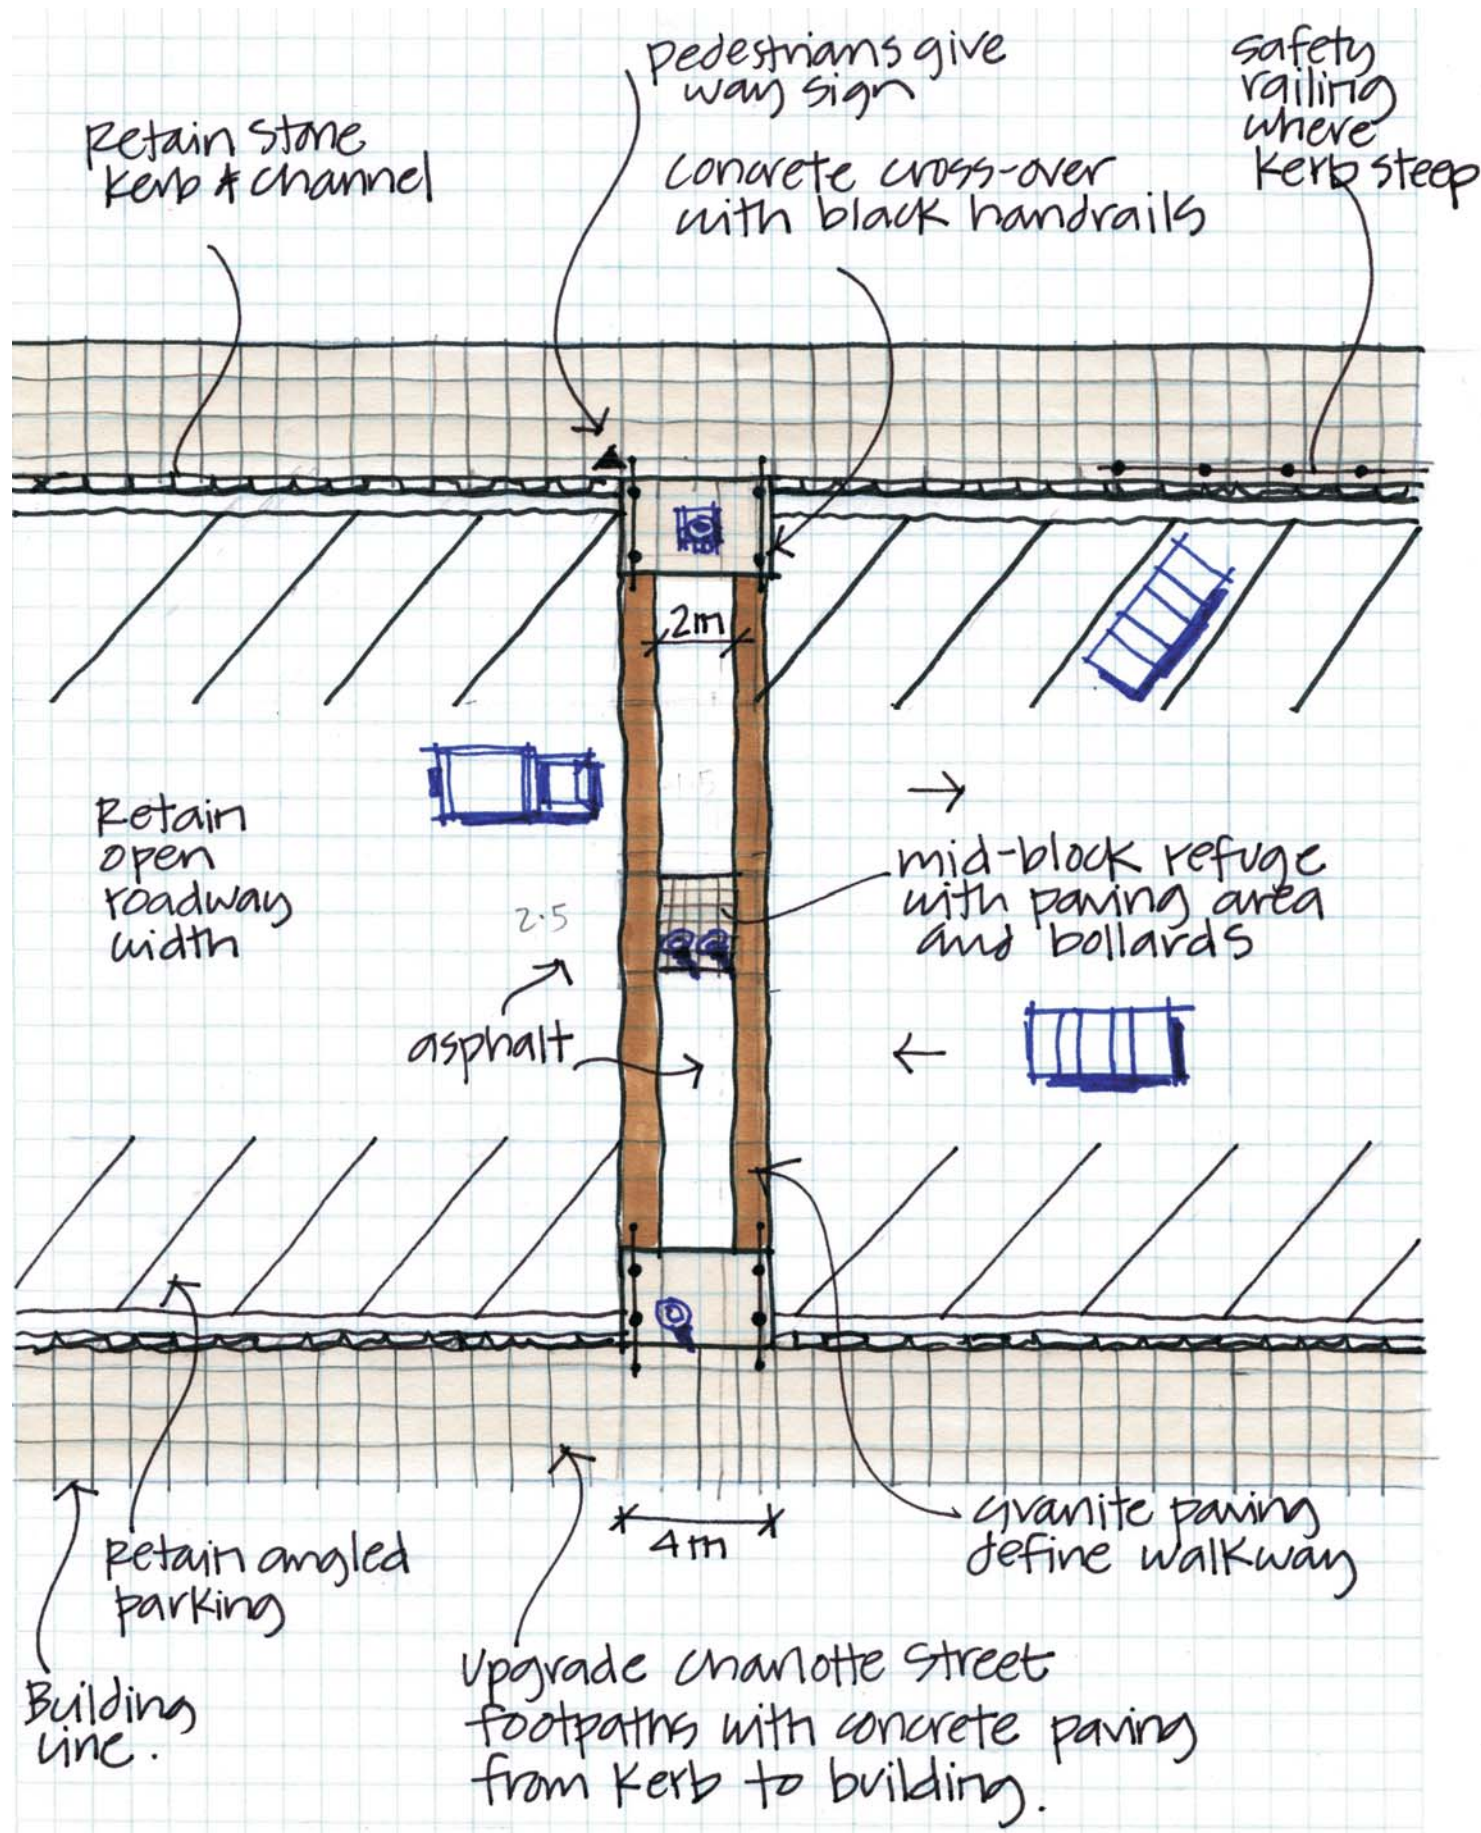 pedestrians give
way sign
safety
railing
where
kerb steep
Retain stone
kerb & channel
concrete cross-over
with black handrails
2m
1.5
Retain
open
roadway
width
2.5
mid-block refuge
with paving area
and bollards
asphalt
4m
granite paving
define walkway
Retain angled
parking
Building
line.
Upgrade Charlotte Street
footpaths with concrete paving
from kerb to building.